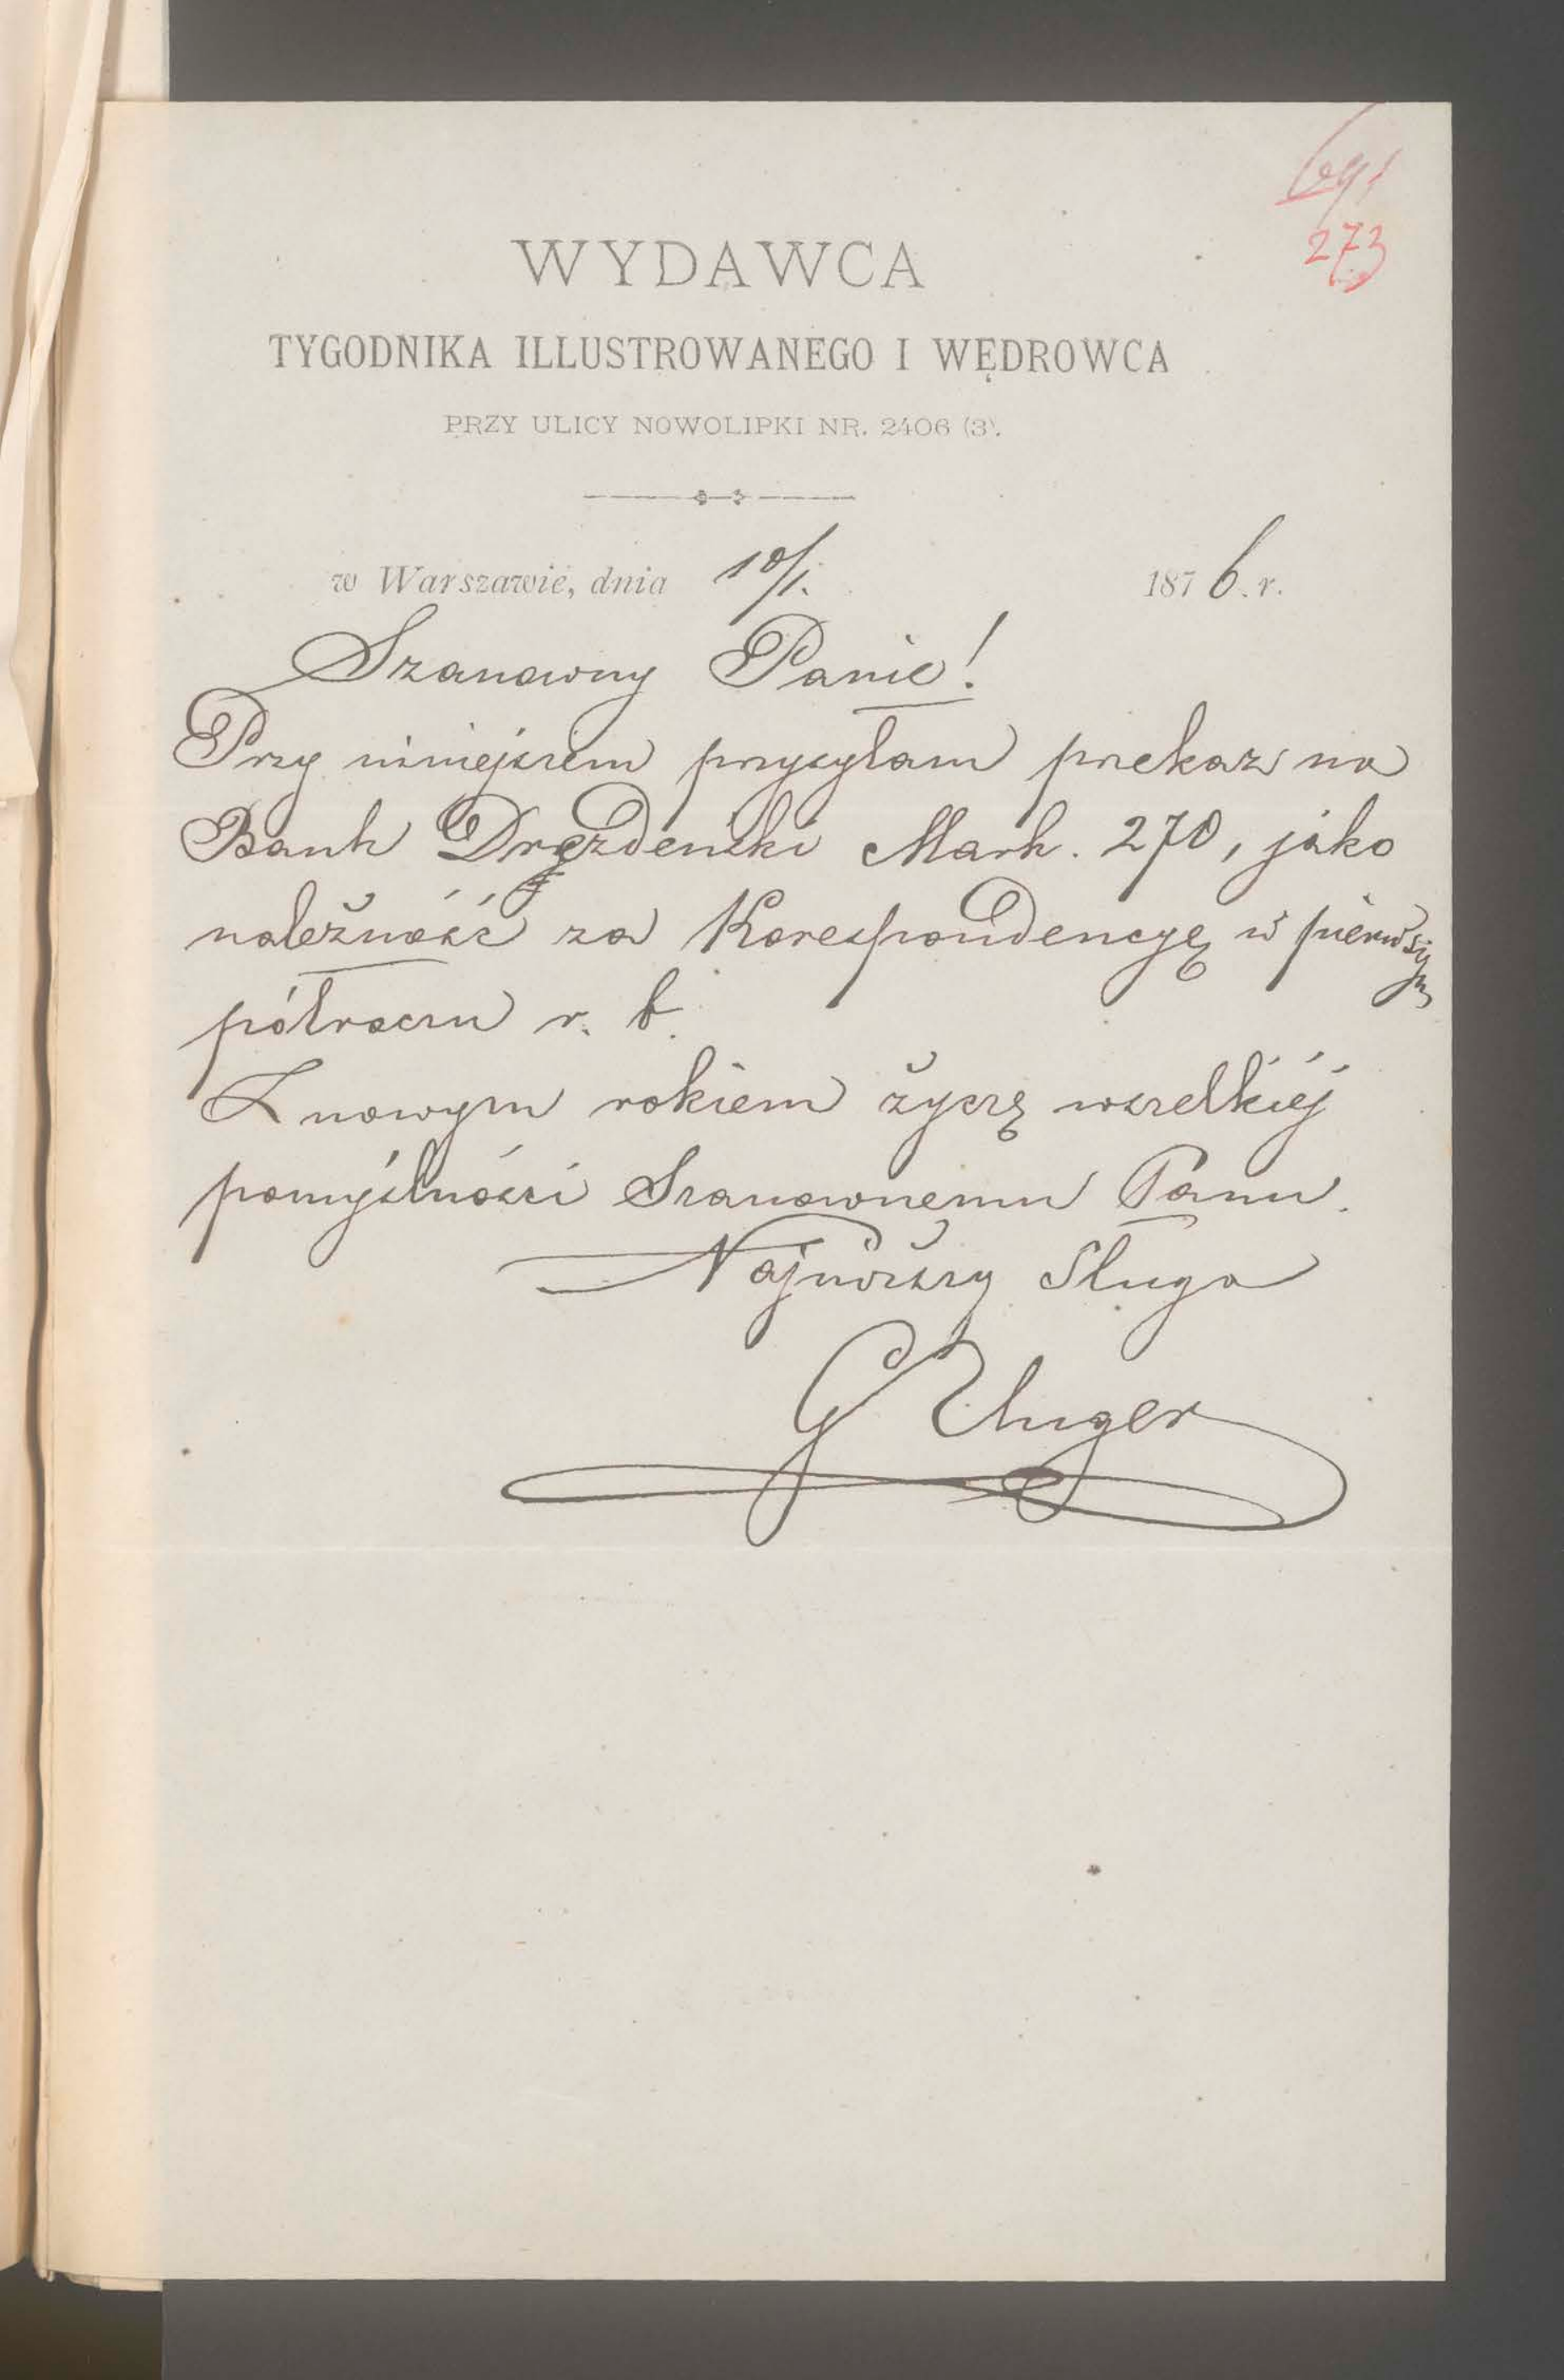 691
273
WYDAWCA
TYGODNIKA ILLUSTROWANEGO I WĘDROWCA
PRZY ULICY NOWOLIPKI NR. 2406 (3).
w Warszawie, dnia 10/1. 1876.r.
Szanowny Panie!
Przy niniejszem przysyłam przekaz na
Bank Drezdeński Mark. 270, jako
należność za Korespondencyę w pierwszym
półroczu r. b.
Z nowym rokiem życzę wszelkiéj
pomyślności Szanownemu Panu.
Najniższy Sługa
G Unger